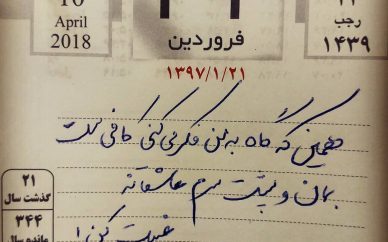 April
2018
فروردین
رجب
۱۴۳۹
۱۳۹۷/۱/۲۱
همین که گاه به من فکر می کنی کافی ست
بمان و پشت سرم عاشقانه
غیبت کن !
۲۱
گذشت سال
۳۴۴
مانده سال